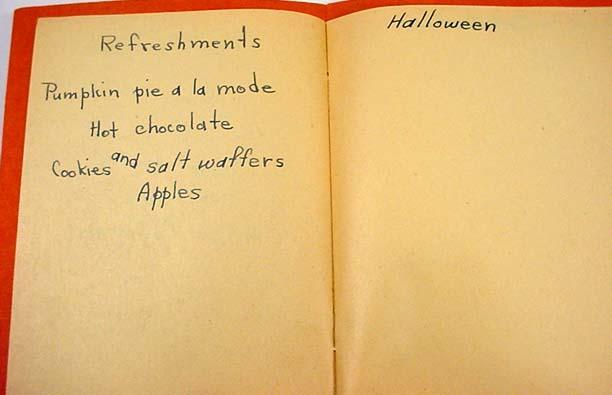 Refreshments
Pumpkin pie a la mode
Hot chocolate
Cookies and salt waffers
Apples
Halloween